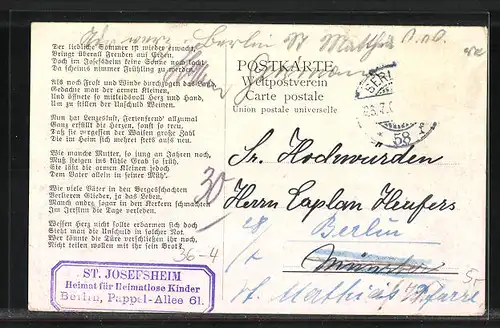 Der liebliche Sommer ist wieder erwacht,
Bringt überall Freuden auf Erden.
Doch im Josefsheim keine Sonne noch lacht
Da scheints nimmer Frühling zu werden.
Als noch Frost und Winde durchzogen das Land
Gedachte man der armen Kleinen,
Und öffnete so mitleidsvoll Herz und Hand,
Um zu stillen der Unschuld Weinen.
Nun hat Lenzesluft, Ferienfreud' allzumal
Ganz erfüllt die Herzen, sonst so treu,
Daß sie vergessen der Waisen große Zahl
Die im Heim sich mehret stets aufs neu.
Wie manche Mutter, so jung an Jahren noch
Muß steigen ins kühle Grab so früh,
Sie läßt die armen Kleinen jedoch
Dem Vater allein in seiner Müh'.
Wie viele Väter in den Bergesschachten
Verlieren Glieder, ja das Leben,
Manch andre sogar in den Kerkern schmachten
Im Irrsinn die Tage verleben.
Wessen Herz nicht sollte erbarmen sich doch
Sieht man die Unschuld in solcher Not.
Wer könnte die Türe verschließen ihr noch,
Nicht teilen wollen mit ihr sein Brot?
ST. JOSEFSHEIM
Heimat für Heimatlose Kinder
Berlin, Pappel-Allee 61.
36-4
30
Berlin St Matthias
POSTKARTE
Weltpostverein
Carte postale
Union postale universelle
BERLIN
58
Sr. Hochwürden
Herrn Caplan Heufers
Berlin
Münster
St. Matthias Pfarre
5,-